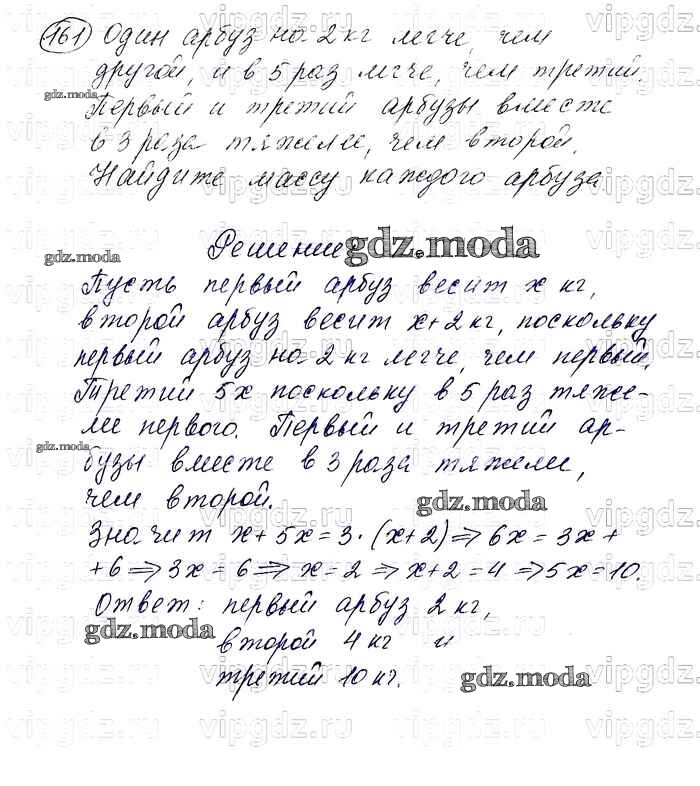 161 Один арбуз на 2 кг легче, чем
другой, и в 5 раз легче, чем третий.
gdz.moda
Первый и третий арбузы вместе
в 3 раза тяжелее, чем второй.
Найдите массу каждого арбуза
Решение gdz.moda
gdz.moda
Пусть первый арбуз весит x кг,
второй арбуз весит x+2 кг, поскольку
первый арбуз на 2 кг легче, чем первый.
Третий 5x поскольку в 5 раз тяже-
лее первого. Первый и третий ар-
gdz.moda
бузы вместе в 3 раза тяжелее,
чем второй.
gdz.moda
Значит x+5x=3·(x+2)⇒6x=3x+
+6⇒3x=6⇒x=2⇒x+2=4⇒5x=10.
Ответ: первый арбуз 2 кг,
gdz.moda
второй 4 кг и
третий 10 кг.
gdz.moda
vipgdz.ru